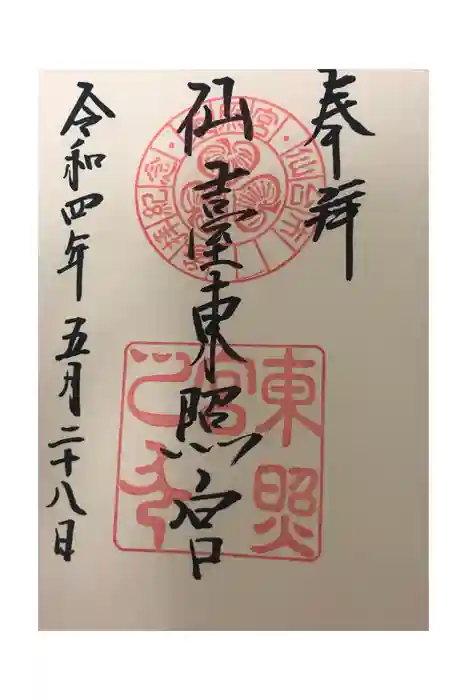 奉拝
仙臺東照宮
令和四年五月二十八日
東照
宮